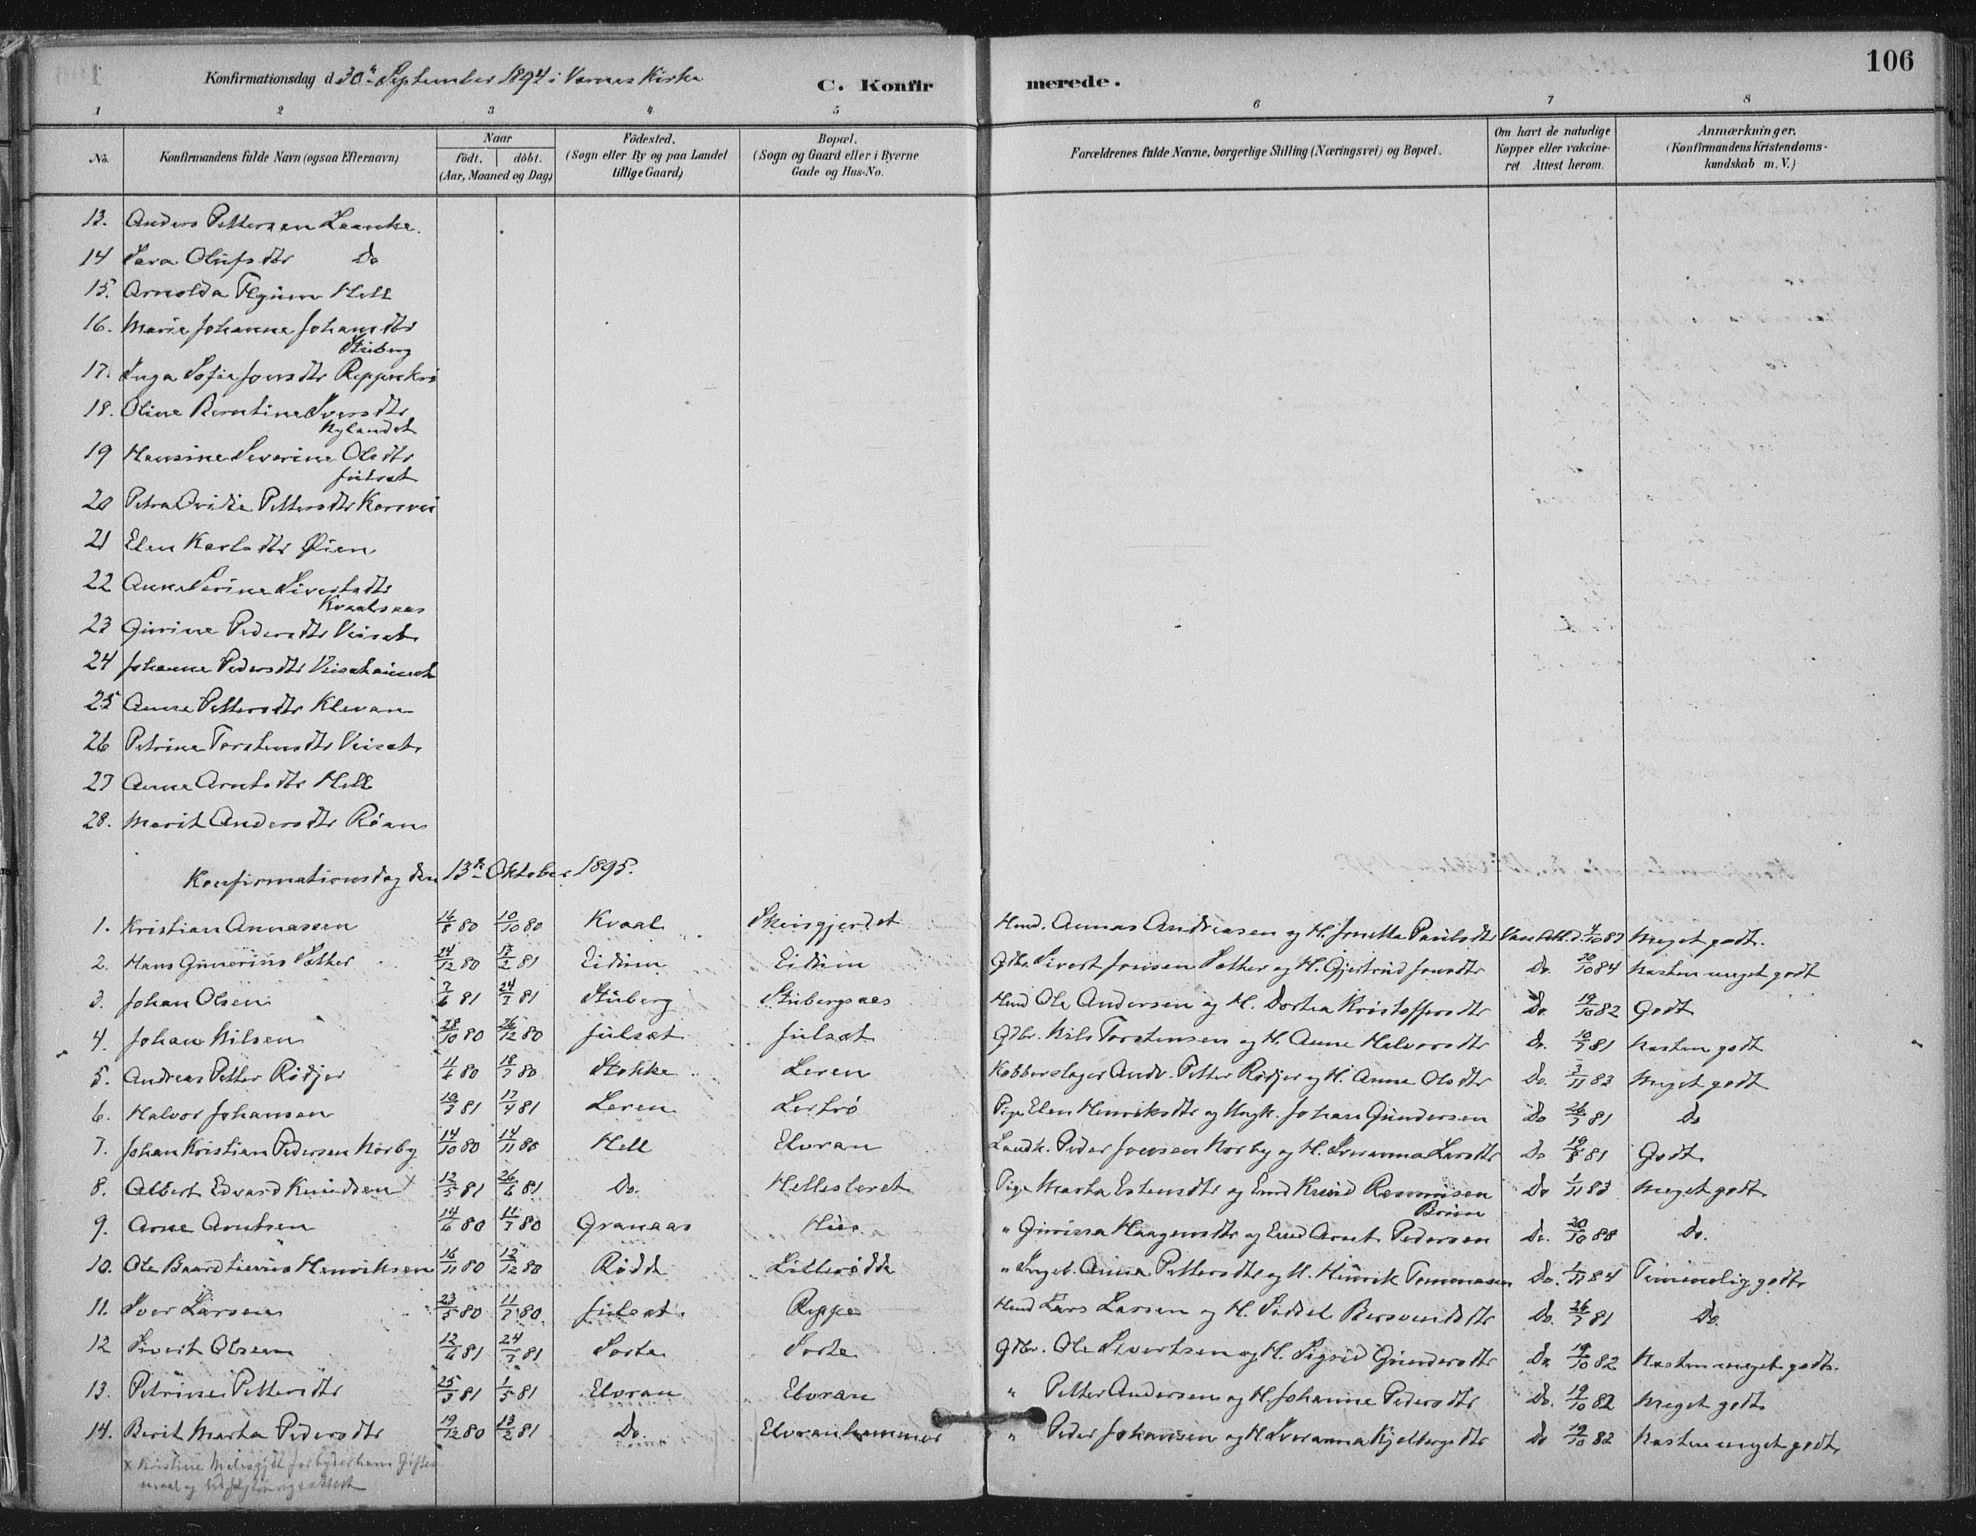 106
Konfirmationsdag d. 30te September 1894 i Værnes Kirke
C. Konfirmerede.
1 2 3 4 5 6 7 8
No. Konfirmandens fulde Navn (ogsaa Efternavn) Naar födt. döbt. (Aar, Maaned og Dag) Födested. (Sogn eller By og paa Landet tillige Gaard) Bopæl. (Sogn og Gaard eller i Byerne Gade og Hus-No. Forældrenes fulde Navne, borgerlige Stilling (Næringsvei) og Bopæl. Om havt de naturlige Kopper eller vakcineret Attest herom. Anmærkninger. (Konfirmandens Kristendomskundskab m. V.)
13. Anders Pettersen Laanke.
14 Sara Olufsdtr Do
15. Arnolda Flyum Hell
16. Marie Johanne Johansdtr Stuberg
17. Inga Sofie Jonsdtr
18. Oline Berntine Iversdtr Nylandet
19 Hansine Severine Olsdtr Julset
20 Petra Ovidie Pettersdtr Korsvei
21 Elen Karlsdtr Øien
22 Anne Serine Sivertsdtr Kvaalsaas
23 Gurine Pedersdtr Viiset
24 Johanne Pedersdtr
25 Anne Pettersdtr Klevan
26 Petrine Torstensdtr Viiset
27 Anne Arntsdtr Hell
28. Marit Andersdtr Røan
Konfirmationsdag den 13de Oktober 1895.
1. Kristian Annassen 16/8 80 10/10 80 Kvaal Skeisgjerdet Hmd. Annas Andreasen og H. Jonetta Paulsdtr Vacc. Att. d. 4/10 87 Meget godt.
2. Hans Gunerius Sæther 14/12 80 13/2 81 Eidum Eidum Gbr. Sivert Jonsen Sæther og H. Gjertrud Jonsdtr Do. 30/10 84 Næsten meget godt
3. Johan Olsen 7/6 81 24/7 81 Stuberg Stubergsaas Hmd Ole Andersen og H. Dortea Kristoffersdtr Do. 19/10 82 Godt
4. Johan Nilsen 28/10 80 26/12 80 Julset Julset Gbr. Nils Torstensen og H. Anne Halvorsdtr Do. 10/7 81 Næsten godt
5. Andreas Petter Rødjer 11/6 80 18/7 80 Stokke Leren Kobberslager Andr. Petter Rødjer og H. Anne Olsdtr Do. 3/11 83 Meget godt
6. Halvor Johansen 10/3 81 17/4 81 Leren Lerbrø Pige Elen Henriksdtr og Ungk. Johan Gundersen Do 26/7 81 Do
7. Johan Kristian Pedersen Norby 14/10 80 14/11 80 Hell Elvran Landh. Peder Jonsen Norby og H. Sveranna Larsdtr Do 19/8 81 Godt
8. Albert Edvard Knudsen x 12/5 81 26/6 81 Do. Hellesteret Pige Marta Estensdtr og Emd Knud Rasmusen Do 1/11 83 Meget godt
9. Arne Arntsen 14/6 80 11/7 80 Granaas " Gurissa Haagensdtr og Emd Arnt Pedersen Do. 20/10 88 Do.
10. Ole Baard Henriksen 16/11 80 12/12 80 Rødde Lillerødde " Anna Pettersdtr og U. Hinrik Tommasen Do. 1/11 84 Temmelig godt
11. Iver Larsen 23/5 80 11/7 80 Julset Reppe Hmd Lars Larsen og H. Siddel Bersvendsdtr Do. 26/7 81 Do.
12 Sivert Olsen 12/6 81 24/7 81 Sorte Sorte Gbr. Ole Sivertsen og H. Sigrid Gundersdtr Do. 19/10 82 Næsten meget godt.
13. Petrine Pettersdtr 25/3 81 1/5 81 Elvran Elvran " Petter Andersen og H. Johanne Pedersdtr Do. 19/10 82 Meget godt
14. Berit Marta Pedersdtr 19/12 80 13/2 81 Do. Elvranhammer " Peder Johansen og H. Sveranna Kjelbergsdtr Do 19/10 82 Næsten meget godt
x Kristine forbyder ham Gifter-
maal og Udflytningsattest